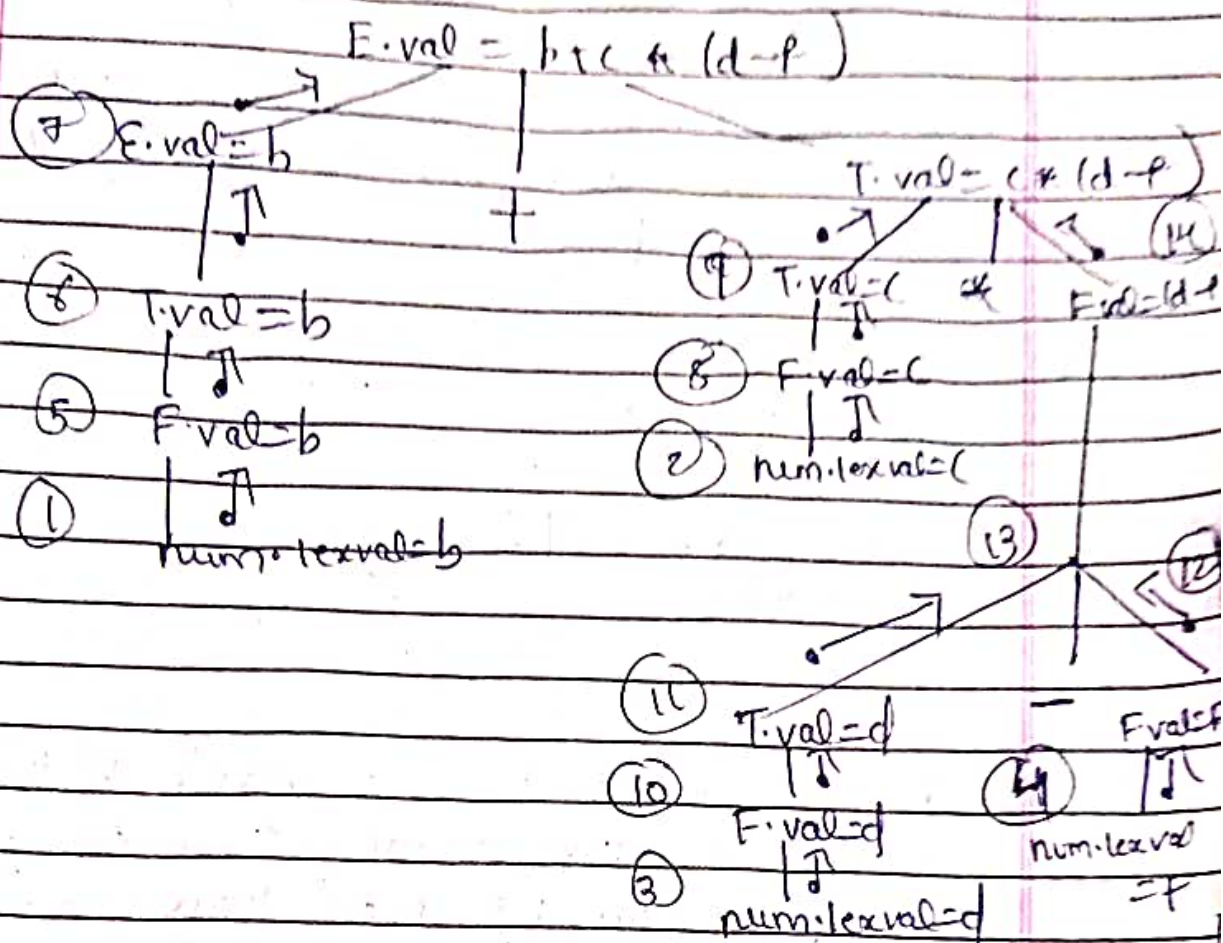 E.val = b + c * (d-f)
7 E.val=b
T.val= c * (d-f)
+
14
9 T.val=c * F.val=(d-f
6 T.val=b
8 F.val=c
5 F.val=b
2 num.lexval=c
1 num.lexval=b
13
12
11 T.val=d - F.val=f
10 F.val=d
4 num.lexval
=f
3 num.lexval=d